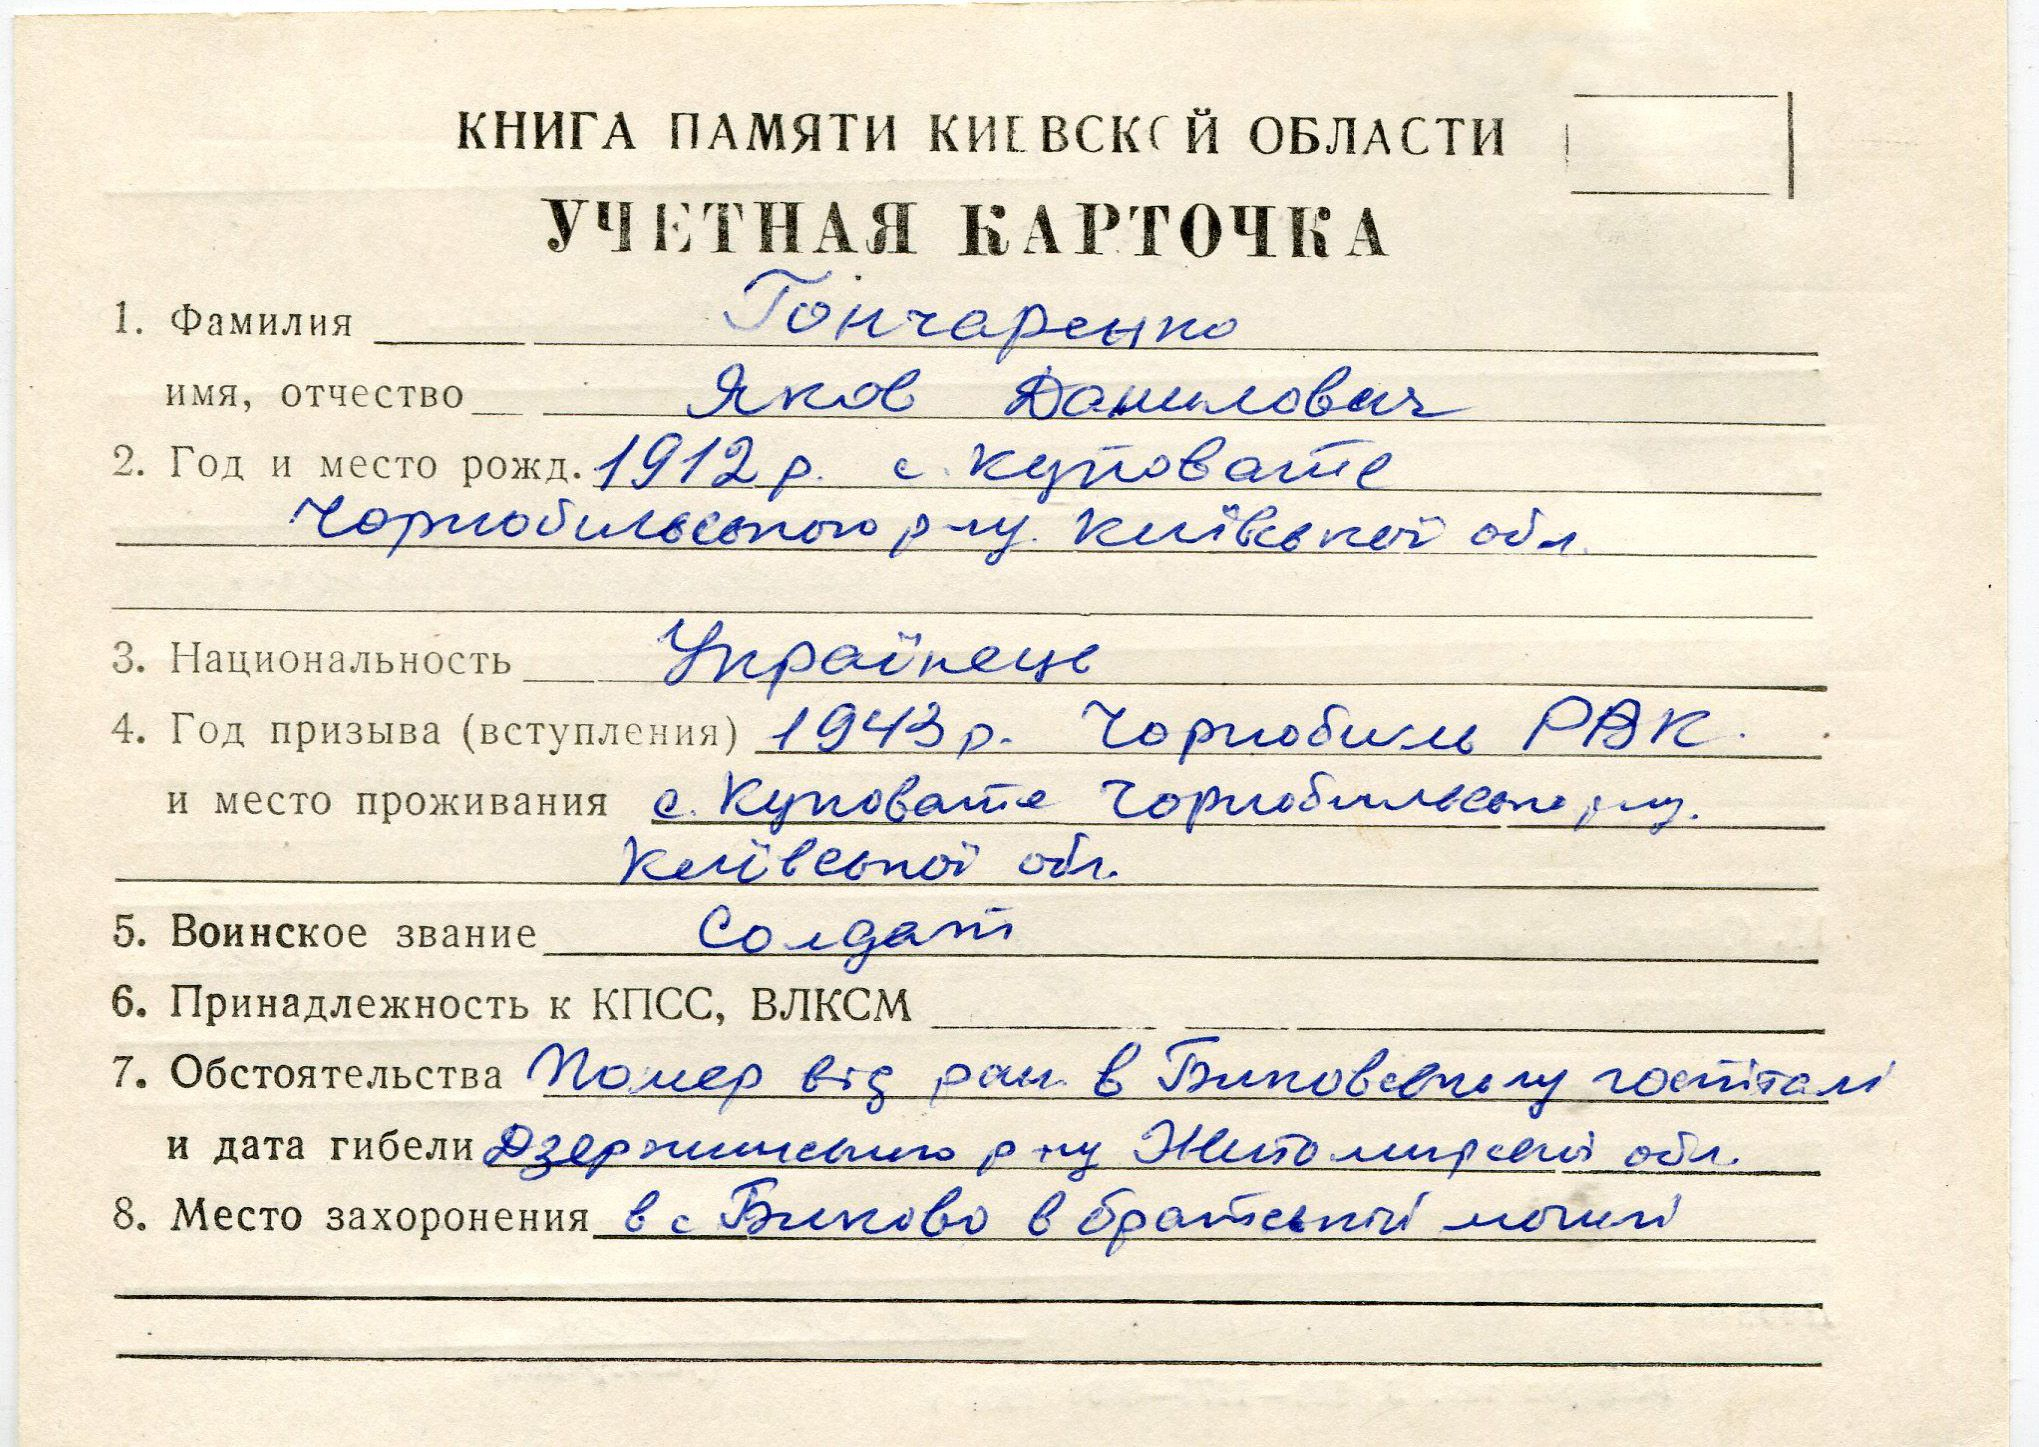 КНИГА ПАМЯТИ КИЕВСКОЙ ОБЛАСТИ
УЧЕТНАЯ КАРТОЧКА
1. Фамилия Гончаренко
имя, отчество Яков Данилович
2. Год и место рожд. 1912 р. с. Куповате
Чорнобильського р-ну. Київської обл.
3. Национальность Українець
4. Год призыва (вступления) 1943 р. Чорнобиль РВК.
и место проживания с. Куповате Чорнобильського р-ну.
Київської обл.
5. Воинское звание Солдат
6. Принадлежность к КПСС, ВЛКСМ
7. Обстоятельства Помер від ран в Биковському госпіталі
и дата гибели Дзержинського р-ну Житомирскої обл.
8. Место захоронения в с Биково в братській могилі